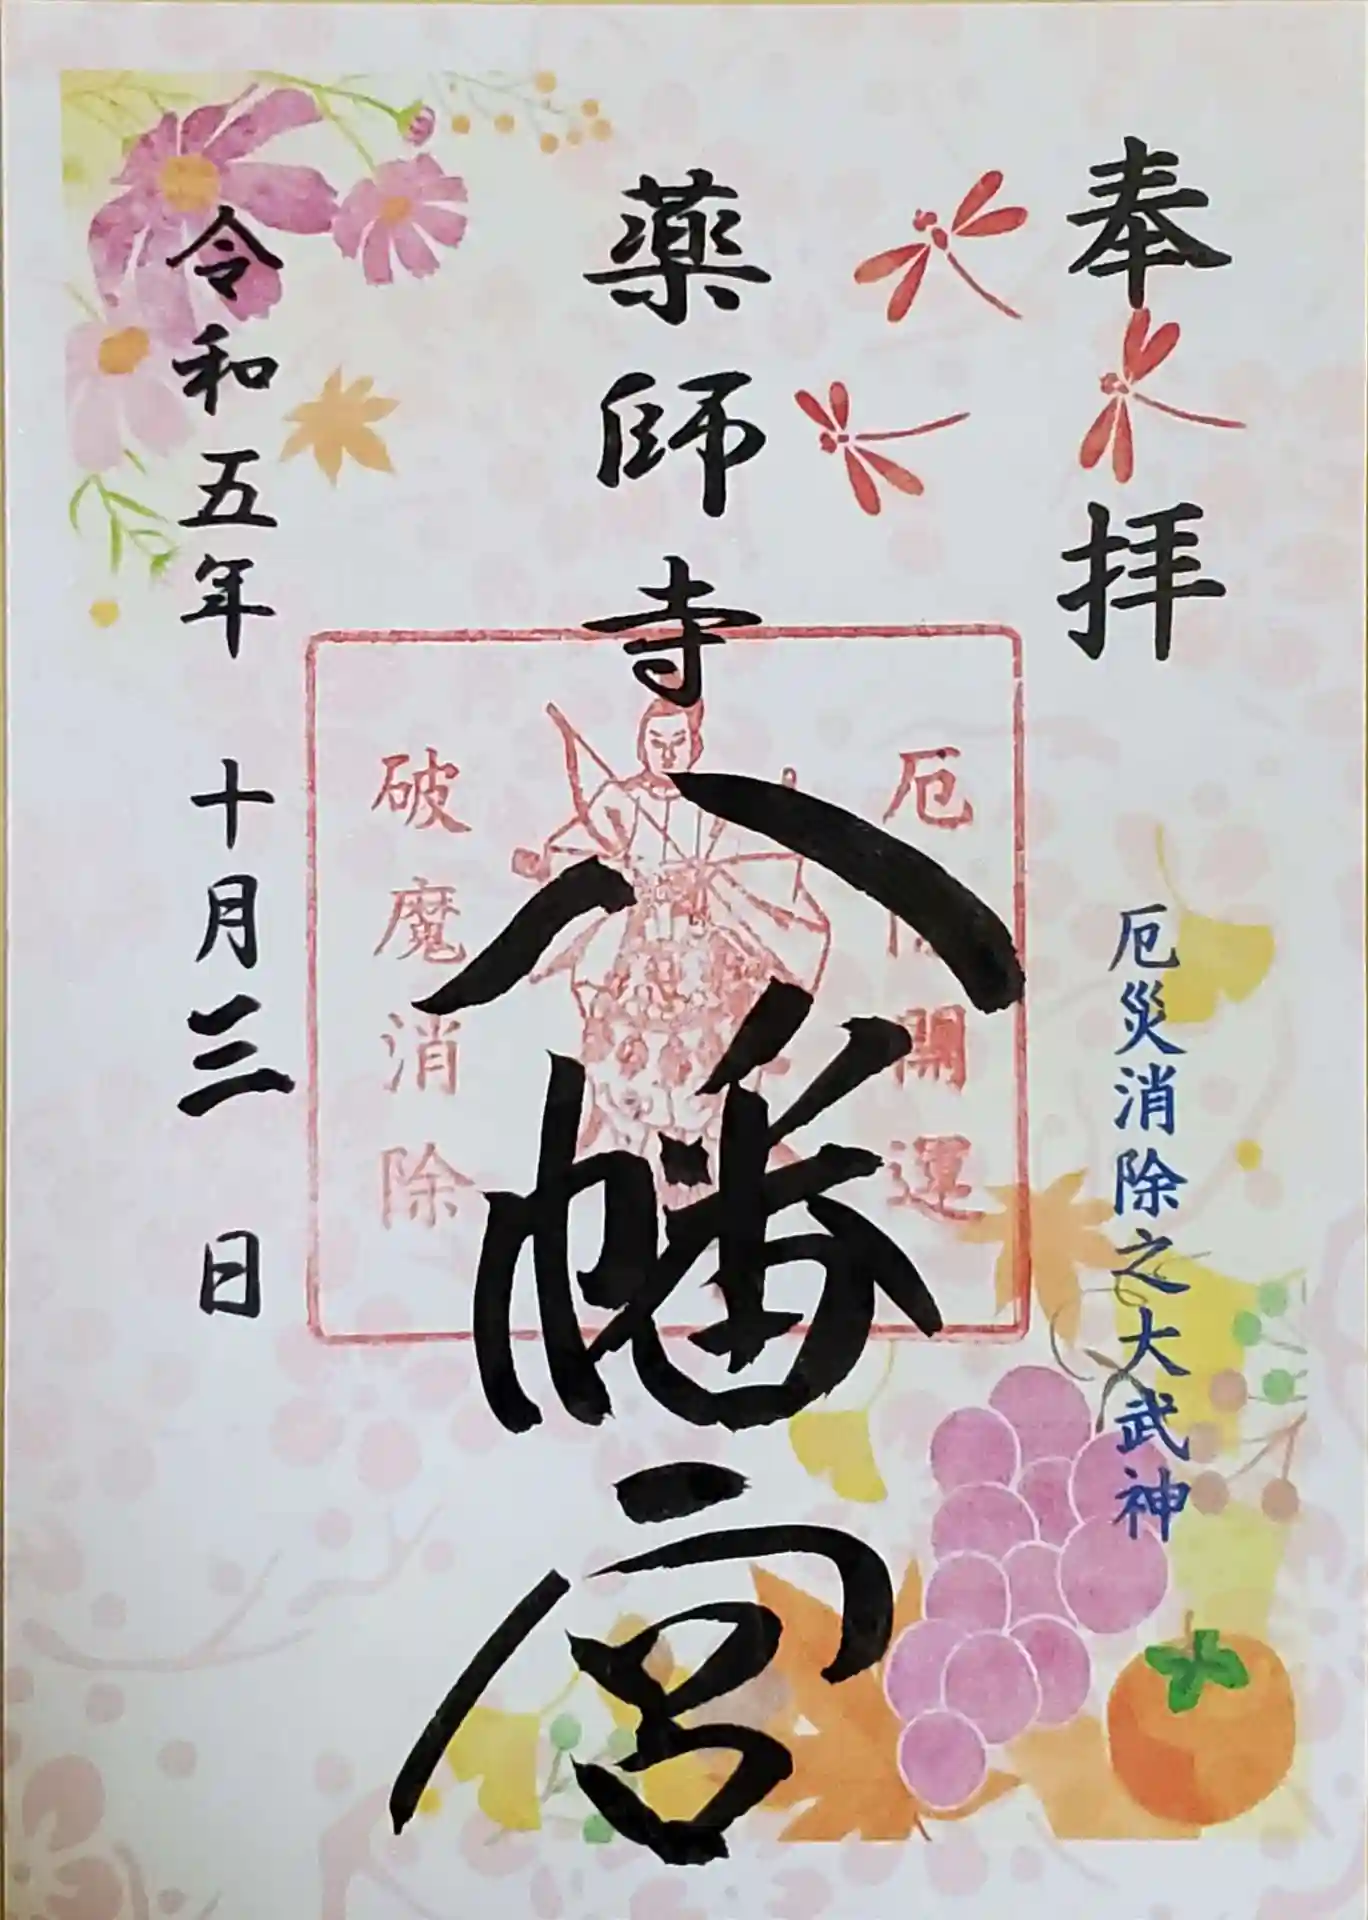 奉拝
厄災消除之大武神
薬師寺
八幡宮
厄除開運
破魔消除
令和五年十月三日